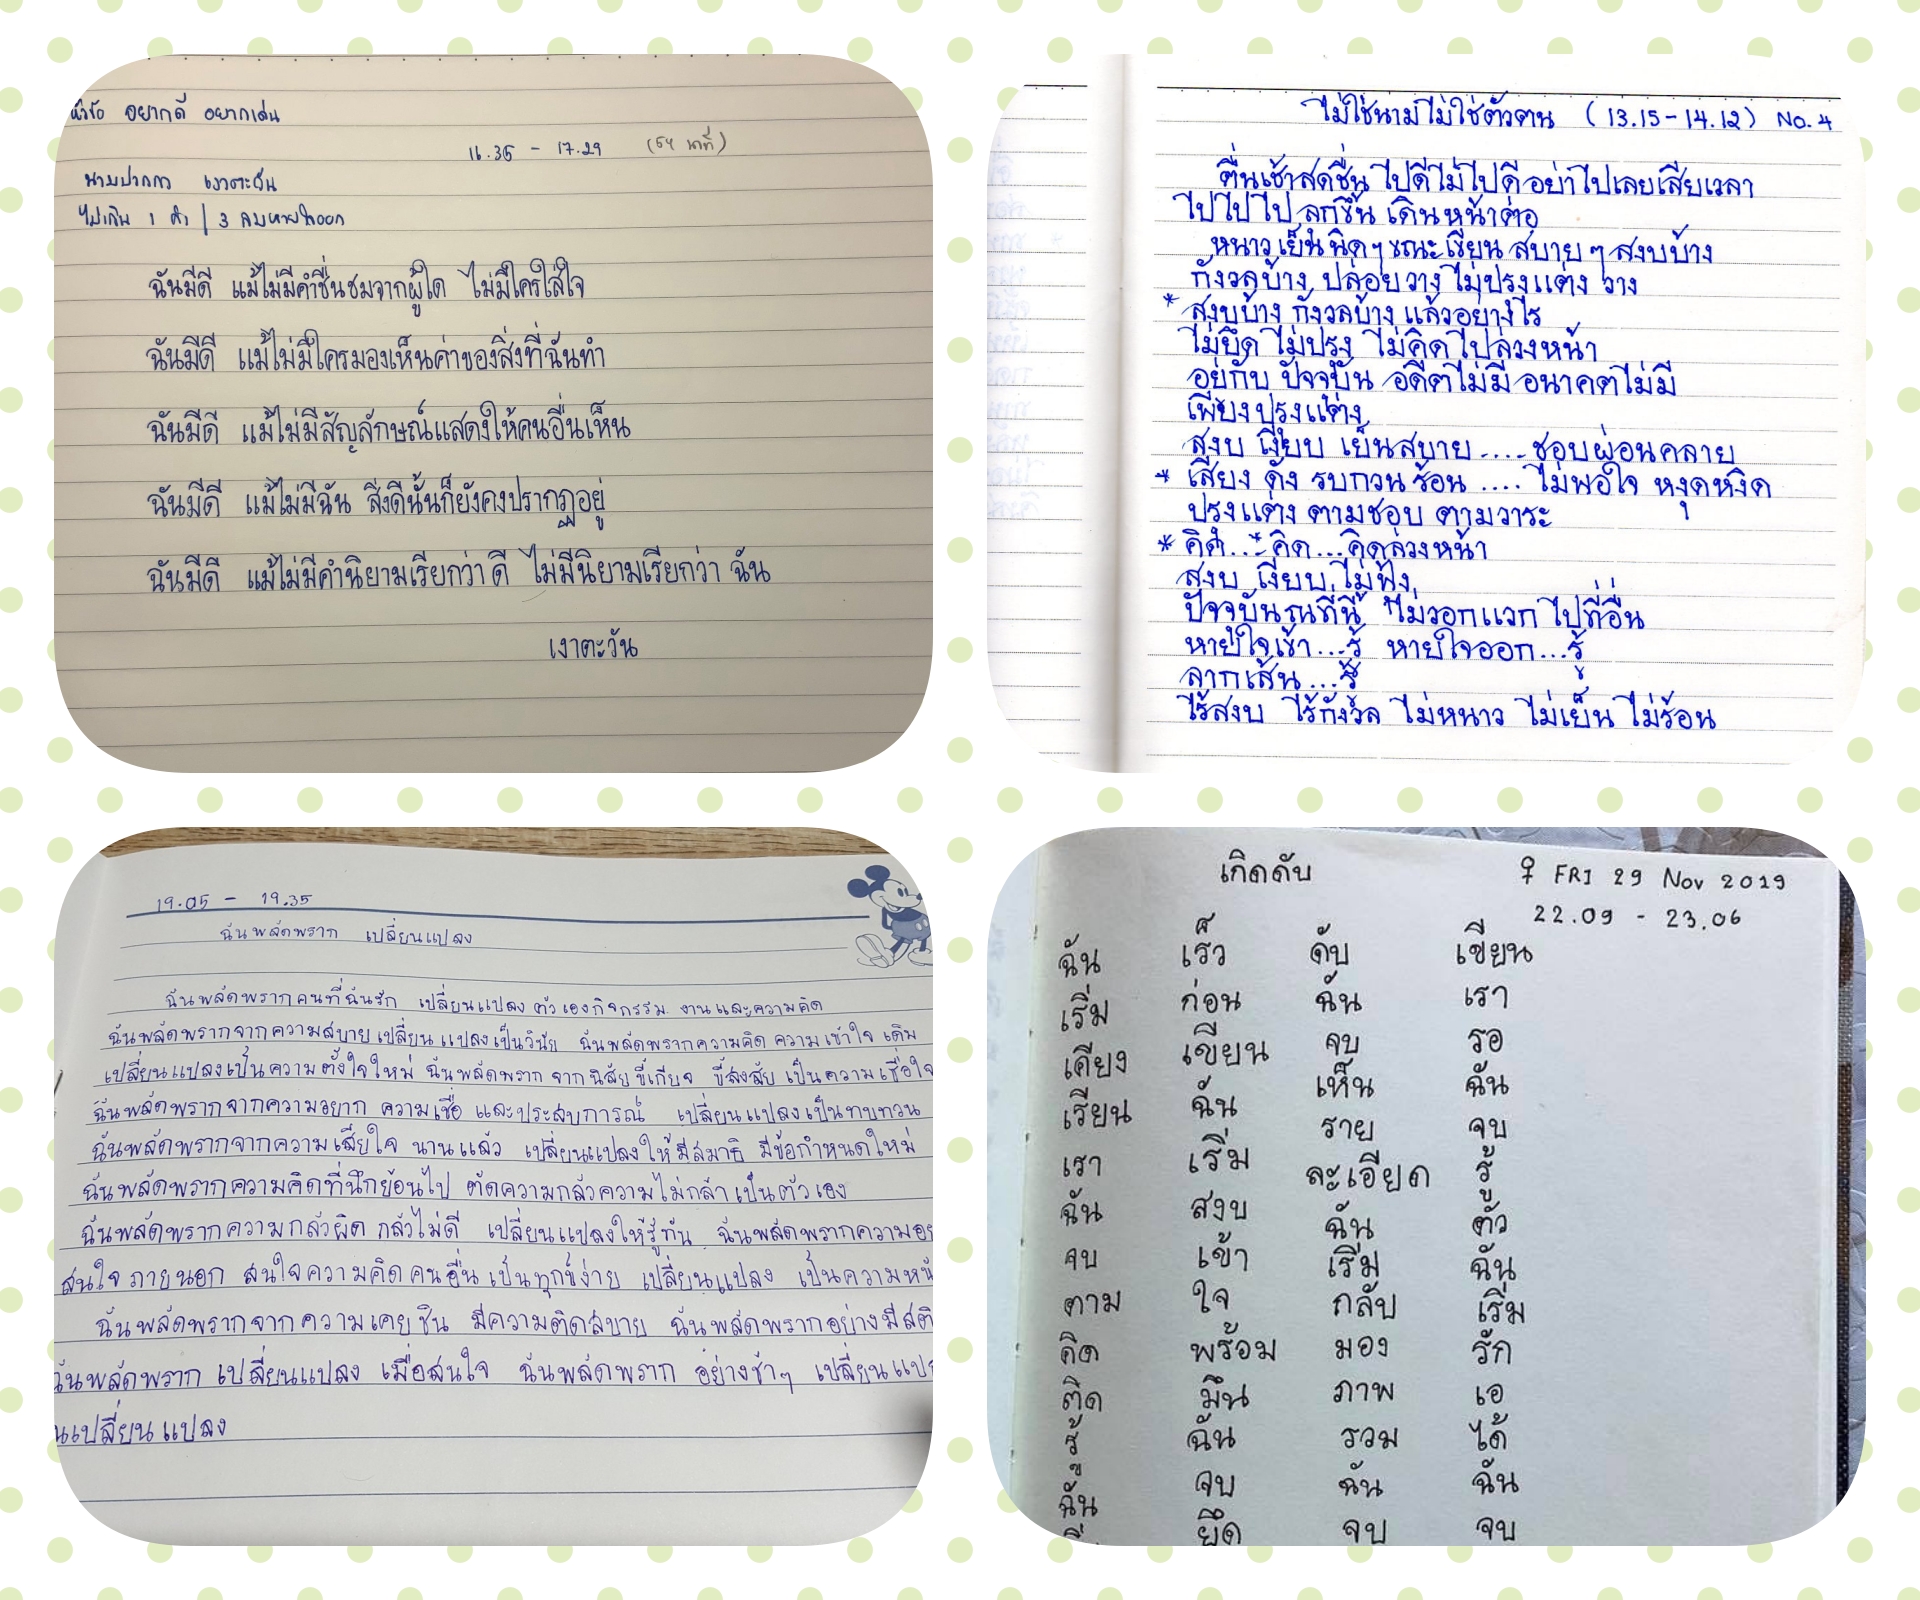 หัวข้อ อยากดี อยากเด่น
16.35 - 17.29 (54 นาที)
นามปากกา เงาตะวัน
ไม่เกิน 1 คำ / 3 ลมหายใจออก
ฉันมีดี แม้ไม่มีคำชื่นชมจากผู้ใด ไม่มีใครใส่ใจ
ฉันมีดี แม้ไม่มีใครมองเห็นค่าของสิ่งที่ฉันทำ
ฉันมีดี แม้ไม่มีสัญลักษณ์แสดงให้คนอื่นเห็น
ฉันมีดี แม้ไม่มีฉัน สิ่งดีนั้นก็ยังคงปรากฏอยู่
ฉันมีดี แม้ไม่มีคำนิยามเรียกว่า ดี ไม่มีนิยามเรียกว่า ฉัน
เงาตะวัน
ไม่ใช่นามไม่ใช่ตัวตน (13.15-14.12) No.4
ตื่นเช้าสดชื่น ไปดีไม่ไปดี อย่าไปเลยเสียเวลา
ไปไปไป ลุกขึ้น เดินหน้าต่อ
หนาว เย็นนิดๆ ขณะเขียน สบายๆ สงบบ้าง
กังวลบ้าง ปล่อยวาง ไม่ปรุงแต่ง วาง
* สงบบ้าง กังวลบ้าง แล้วอย่างไร
ไม่ยึด ไม่ปรุง ไม่คิดไปล่วงหน้า
อยู่กับ ปัจจุบัน อดีตไม่มี อนาคตไม่มี
เพียงปรุงแต่ง
สงบ เงียบ เย็นสบาย .... ชอบผ่อนคลาย
* เสียง ดัง รบกวน ร้อน .... ไม่พอใจ หงุดหงิด
ปรุงแต่ง ตามชอบ ตามวาระ
* คิด...* คิด...คิดล่วงหน้า
สงบ เงียบ ไม่ฟุ้ง
ปัจจุบันณที่นี้ ไม่วอกแวก ไปที่อื่น
หายใจเข้า...รู้ หายใจออก...รู้
ลากเส้น...รู้
ไร้สงบ ไร้กังวล ไม่หนาว ไม่เย็น ไม่ร้อน
19.05 - 19.35
ฉันพลัดพราก เปลี่ยนแปลง
ฉันพลัดพรากคนที่ฉันรัก เปลี่ยนแปลง ตัวเองกิจกรรม งานและความคิด
ฉันพลัดพรากจากความสบาย เปลี่ยนแปลงเป็นวินัย ฉันพลัดพรากความคิด ความเข้าใจ เดิม
เปลี่ยนแปลงเป็นความตั้งใจใหม่ ฉันพลัดพราก จากนิสัยขี้เกียจ ขี้สงสัย เป็นความเชื่อใจ
ฉันพลัดพรากจากความอยาก ความเชื่อ และประสบการณ์ เปลี่ยนแปลงเป็นทบทวน
ฉันพลัดพรากจากความเสียใจ นานแล้ว เปลี่ยนแปลงให้มีสมาธิ มีข้อกำหนดใหม่
ฉันพลัดพรากความคิดที่นึกย้อนไป ตัดความกลัวความไม่กล้า เป็นตัวเอง
ฉันพลัดพรากความกลัวผิด กลัวไม่ดี เปลี่ยนแปลงให้รู้ทัน ฉันพลัดพรากความอย
สนใจ ภายนอก สนใจความคิดคนอื่น เป็นทุกข์ง่าย เปลี่ยนแปลง เป็นความหนั
ฉันพลัดพรากจากความเคยชิน มีความติดสบาย ฉันพลัดพรากอย่างมีสติ
ฉันพลัดพราก เปลี่ยนแปลง เมื่อสนใจ ฉันพลัดพราก อย่างช้าๆ เปลี่ยนแปล
นเปลี่ยนแปลง
เกิดดับ ♀ FRI 29 Nov 2019
22.09 - 23.06
ฉัน เร็ว ดับ เขียน
เริ่ม ก่อน ฉัน เรา
เคียง เขียน จบ รอ
เรียน ฉัน เห็น ฉัน
เรา เริ่ม ราย จบ
ฉัน สงบ ละเอียด รู้
จบ เข้า ฉัน ตัว
ตาม ใจ เริ่ม ฉัน
คิด พร้อม กลับ เริ่ม
ติด มึน มอง รัก
รู้ ฉัน ภาพ เอ
ฉัน จบ รวม ได้
ยึด ฉัน ฉัน
จบ จบ